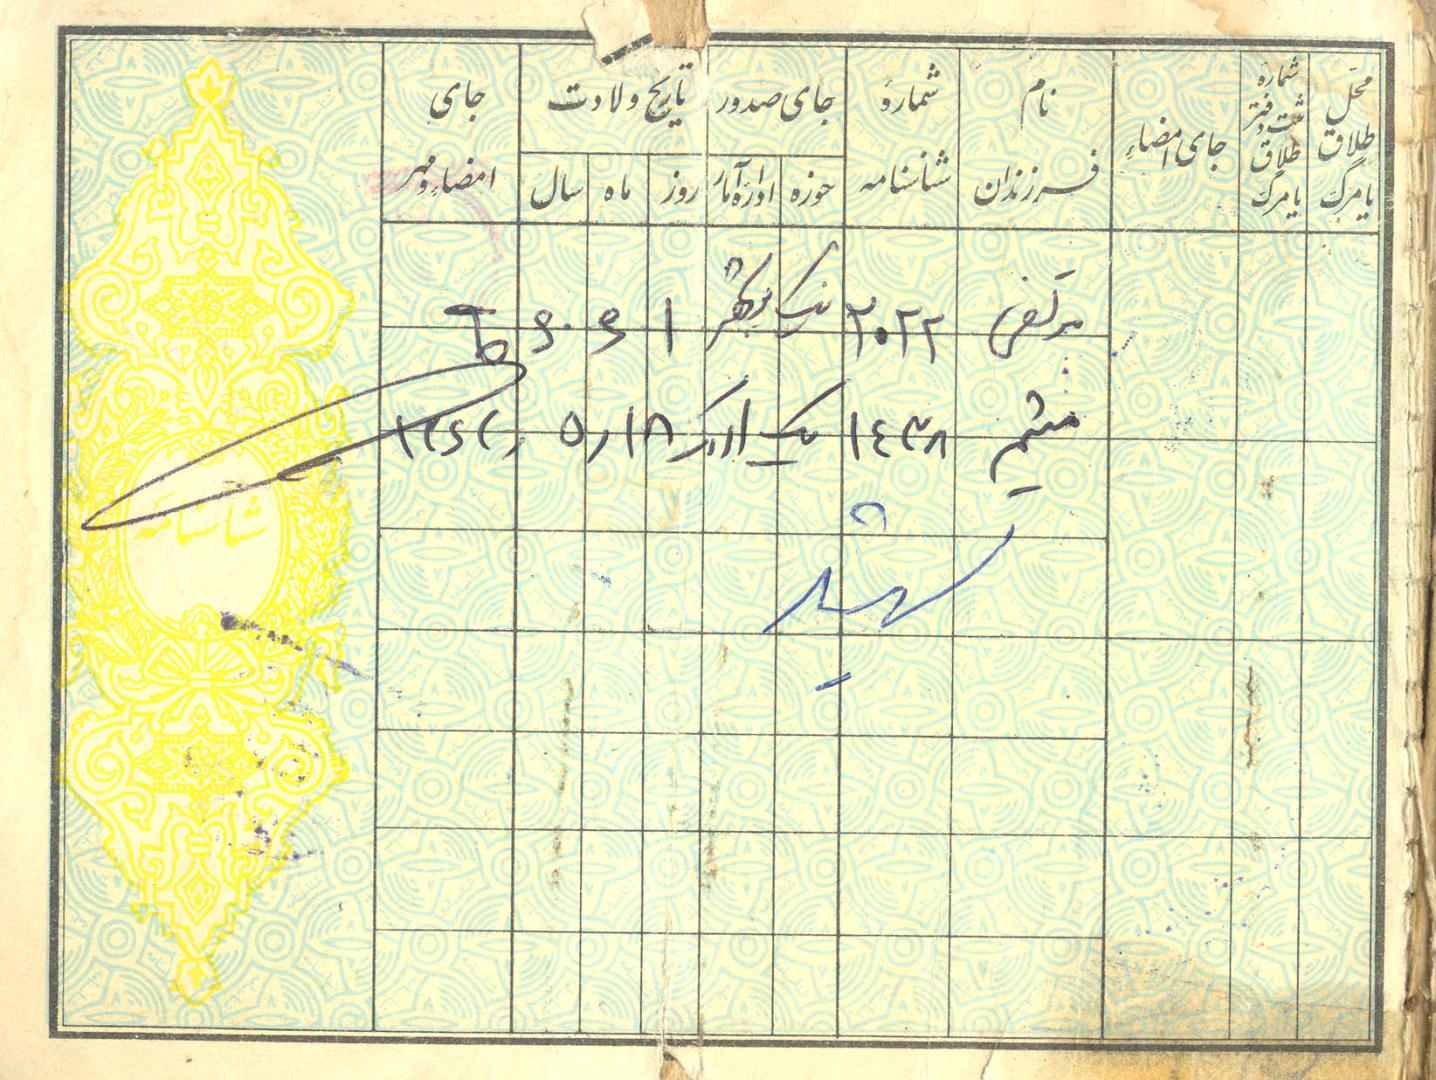 محل طلاق یا مرگ
شماره ثبت و دفتر طلاق یا مرگ
جای امضاء
نام فرزندان
شمارهٔ شناسنامه
جای صدور
حوزه
اداره آمار
تاریخ ولادت
روز
ماه
سال
جای امضاء و مهر
مرتضی ۲۰۲۲ یک ۱
میثم ۱٤۳۸ یک اراک ۱۸ ر ۵ ر
شهید
شناسنامه